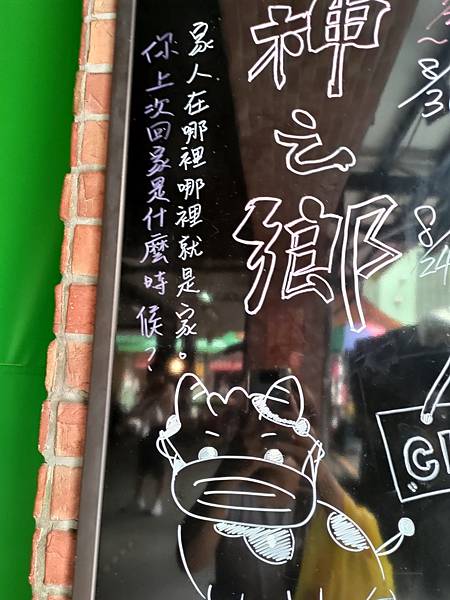 神之鄉
家人在哪裡哪裡就是家。
你上次回家是什麼時候？
8/
8/
24